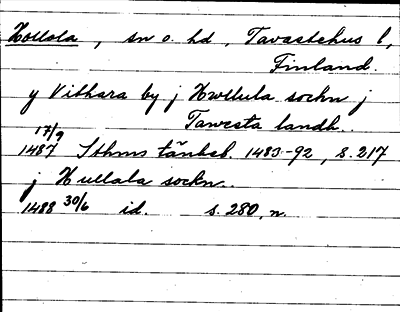 Hollola, sn o. hd, Tavastehus l,
Finland.
y Vithara by j Hwllula sockn j
Tawesta landh..
17/9
1487 Sthms tänkeb. 1483-92, s. 217
j Hullala sockn..
1488 30/6 id. s. 280, n.